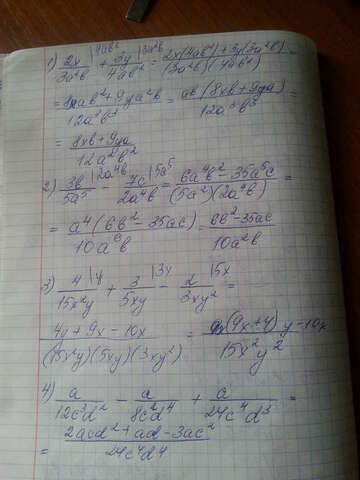 1) 2x/3a²b |4ab² + 3y/4ab² |3a²b = 2x(4ab²)+3y(3a²b)/(3a²b)(4ab²) =
= 8xab²+9ya²b/12a³b³ = ab(8xb+9ya)/12a³b³ =
= 8xb+9ya/12a²b²
2) 3b/5a⁵ |2a⁴b - 7c/2a⁴b |5a⁵ = 6a⁴b²-35a⁵c/(5a²)(2a⁴b) =
= a⁴(6b²-35ac)/10a⁶b = 6b²-35ac/10a²b
3) 4/15x²y |y + 3/5xy |3x - 2/3xy² |5x =
4y+9x-10x/(15x²y)(5xy)(3xy²) = (9x+4)y-10x/15x²y²
4) a/12c³d² - a/8c²d⁴ + a/24c⁴d³ =
= 2acd²+ad-3ac²/24c⁴d⁴